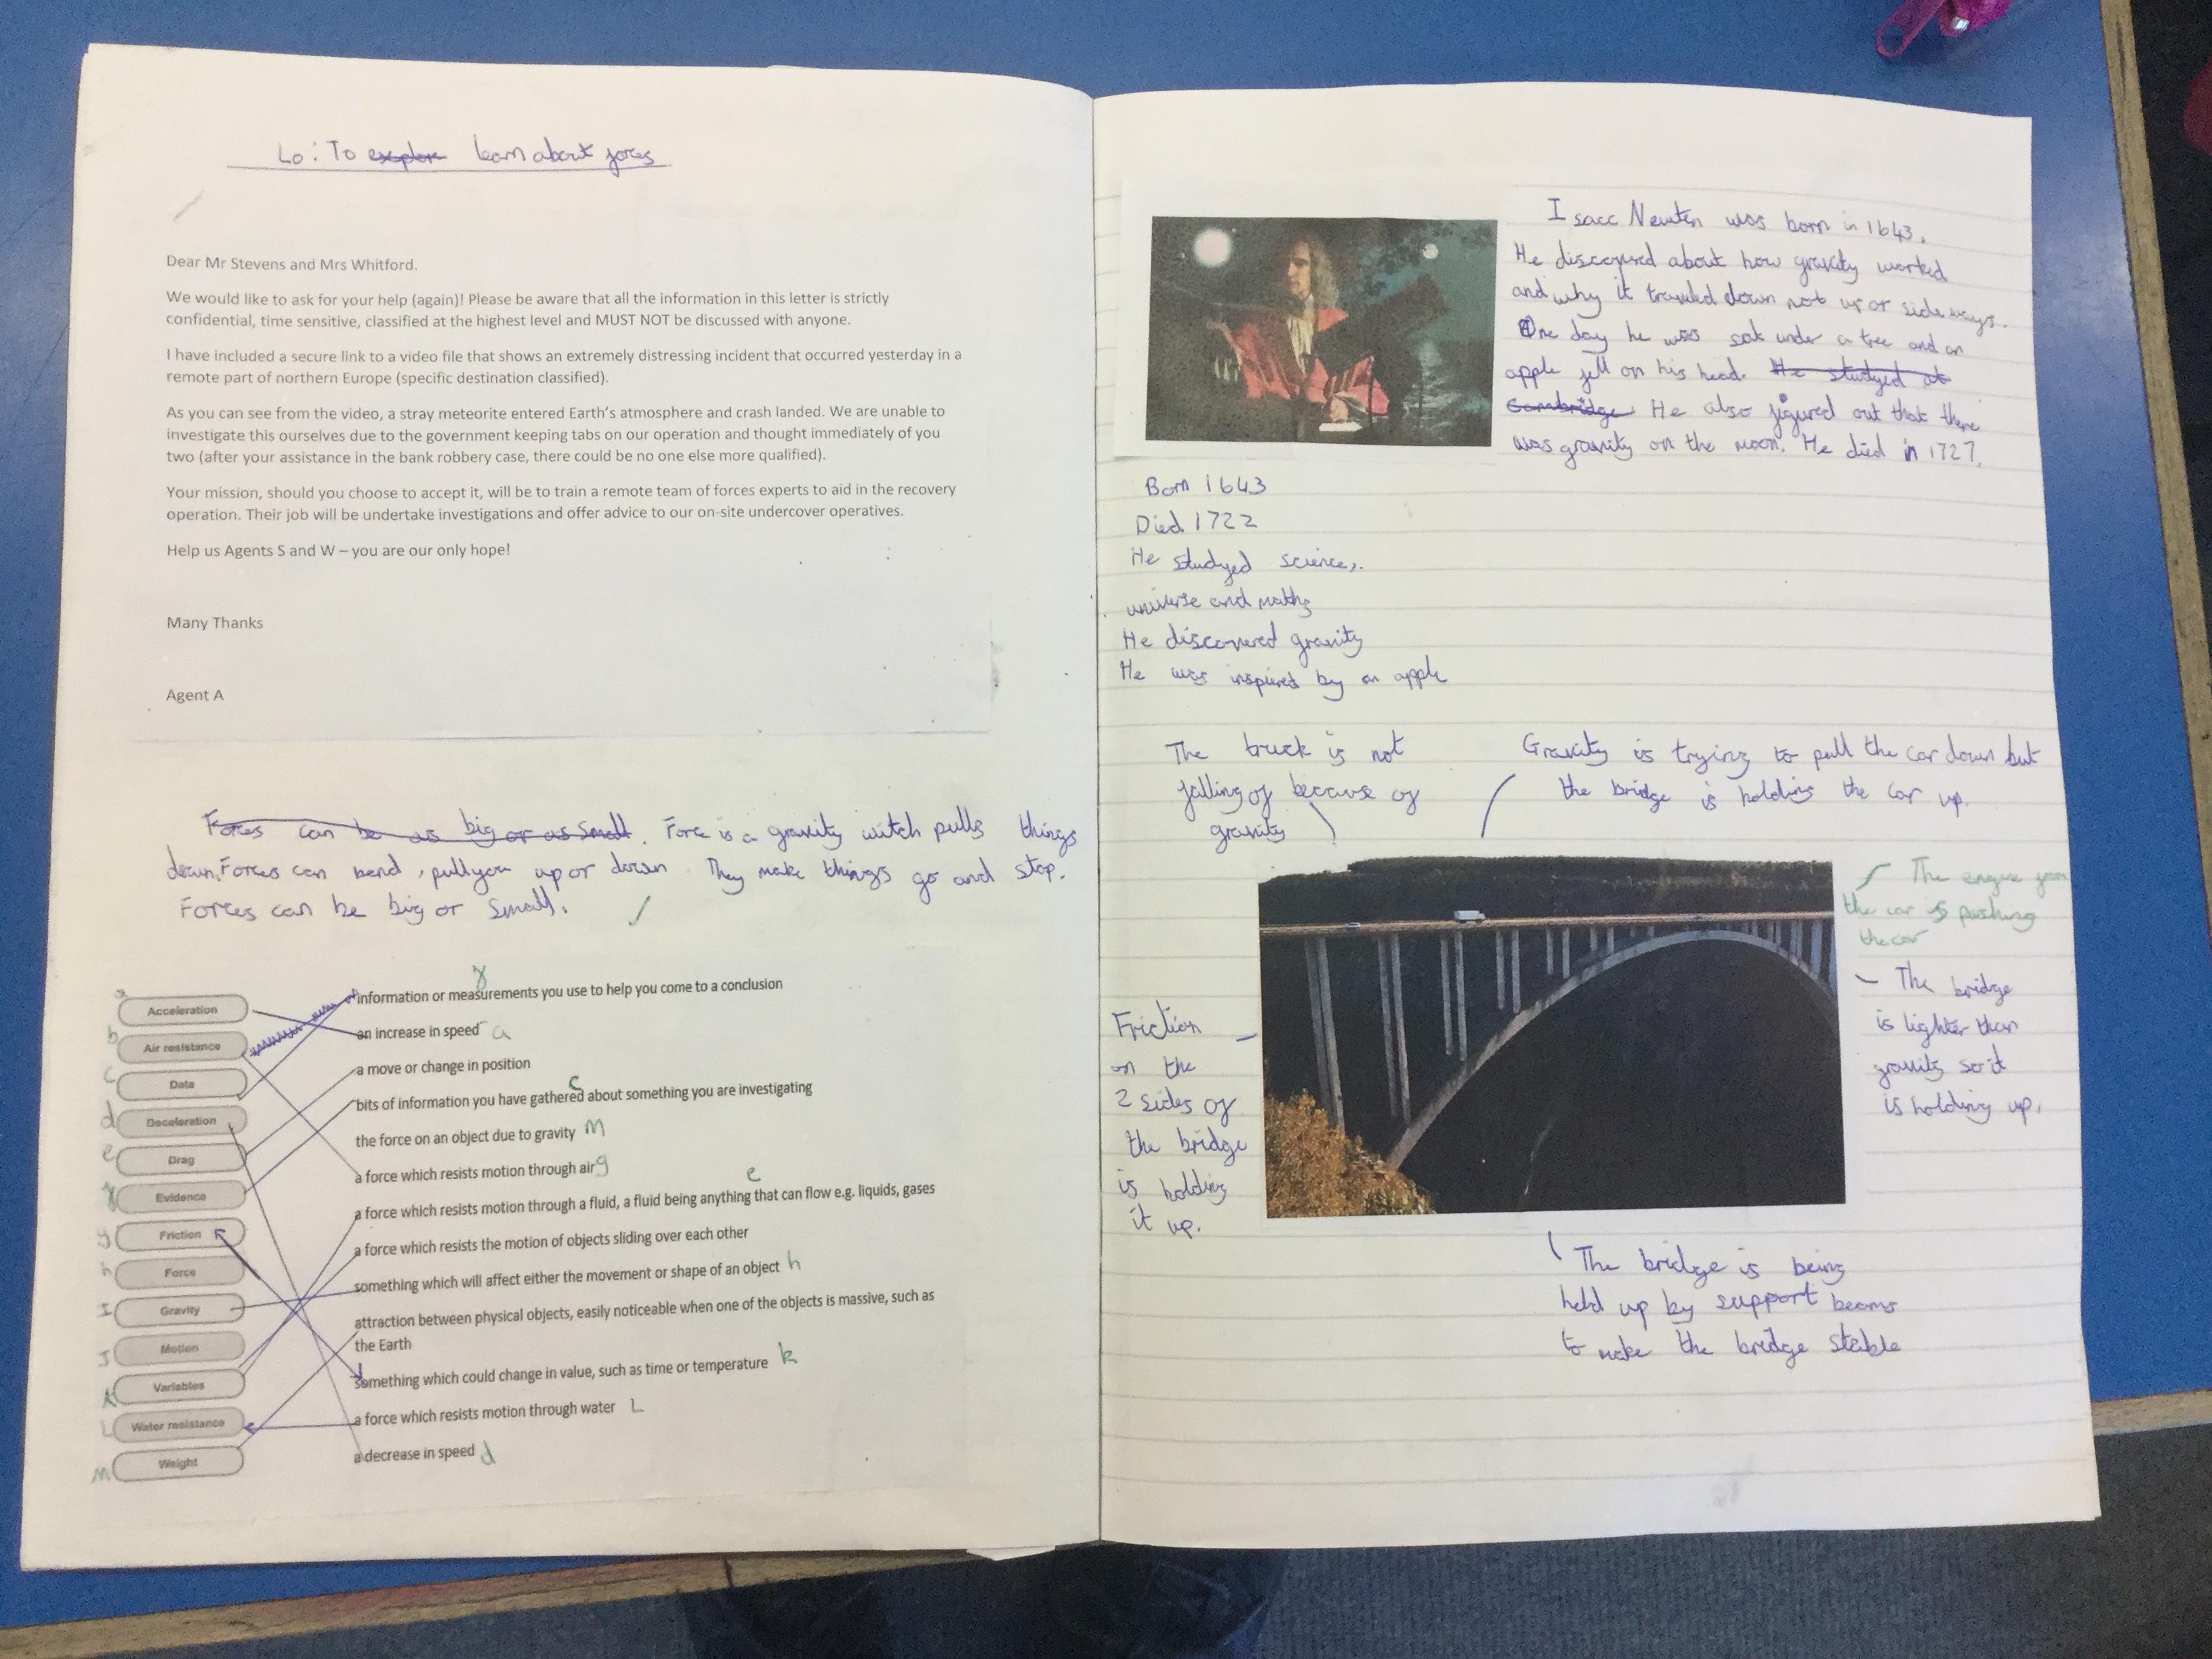 Lo: To explore learn about forces
Dear Mr Stevens and Mrs Whitford.
We would like to ask for your help (again)! Please be aware that all the information in this letter is strictly
confidential, time sensitive, classified at the highest level and MUST NOT be discussed with anyone.
I have included a secure link to a video file that shows an extremely distressing incident that occurred yesterday in a
remote part of northern Europe (specific destination classified).
As you can see from the video, a stray meteorite entered Earth's atmosphere and crash landed. We are unable to
investigate this ourselves due to the government keeping tabs on our operation and thought immediately of you
two (after your assistance in the bank robbery case, there could be no one else more qualified).
Your mission, should you choose to accept it, will be to train a remote team of forces experts to aid in the recovery
operation. Their job will be undertake investigations and offer advice to our on-site undercover operatives.
Help us Agents S and W – you are our only hope!
Many Thanks
Agent A
Forces can be as big or as small. Force is a gravity witch pulls things
down. Forces can bend, pull you up or down They make things go and stop.
Forces can be big or small.
a
Acceleration
b
Air resistance
c
Data
d
Deceleration
e
Drag
Evidence
g
Friction
h
Force
I
Gravity
J
Motion
k
Variables
L
Water resistance
M
Weight
information or measurements you use to help you come to a conclusion
an increase in speed a
a move or change in position
c
bits of information you have gathered about something you are investigating
the force on an object due to gravity M
a force which resists motion through air g
e
a force which resists motion through a fluid, a fluid being anything that can flow e.g. liquids, gases
a force which resists the motion of objects sliding over each other
something which will affect either the movement or shape of an object h
attraction between physical objects, easily noticeable when one of the objects is massive, such as
the Earth
something which could change in value, such as time or temperature k
a force which resists motion through water L
a decrease in speed d
Isacc Newton was born in 1643.
He discovered about how gravity worked
and why it traveled down not up or sideways.
One day he was sat under a tree and an
apple fell on his head. He studyed at
Cambridge He also figured out that there
was gravity on the moon. He died in 1727.
Born 1643
Died 1722
He studyed science,.
universe and maths
He discovered gravity
He was inspired by an apple
The truck is not
falling of because of
gravity
Gravity is trying to pull the car down but
the bridge is holding the car up.
The engine from
the car is pushing
the car
The bridge
is lighter than
gravity so it
is holding up.
Friction
on the
2 sides of
the bridge
is holding
it up.
The bridge is being
held up by support beams
to make the bridge stable